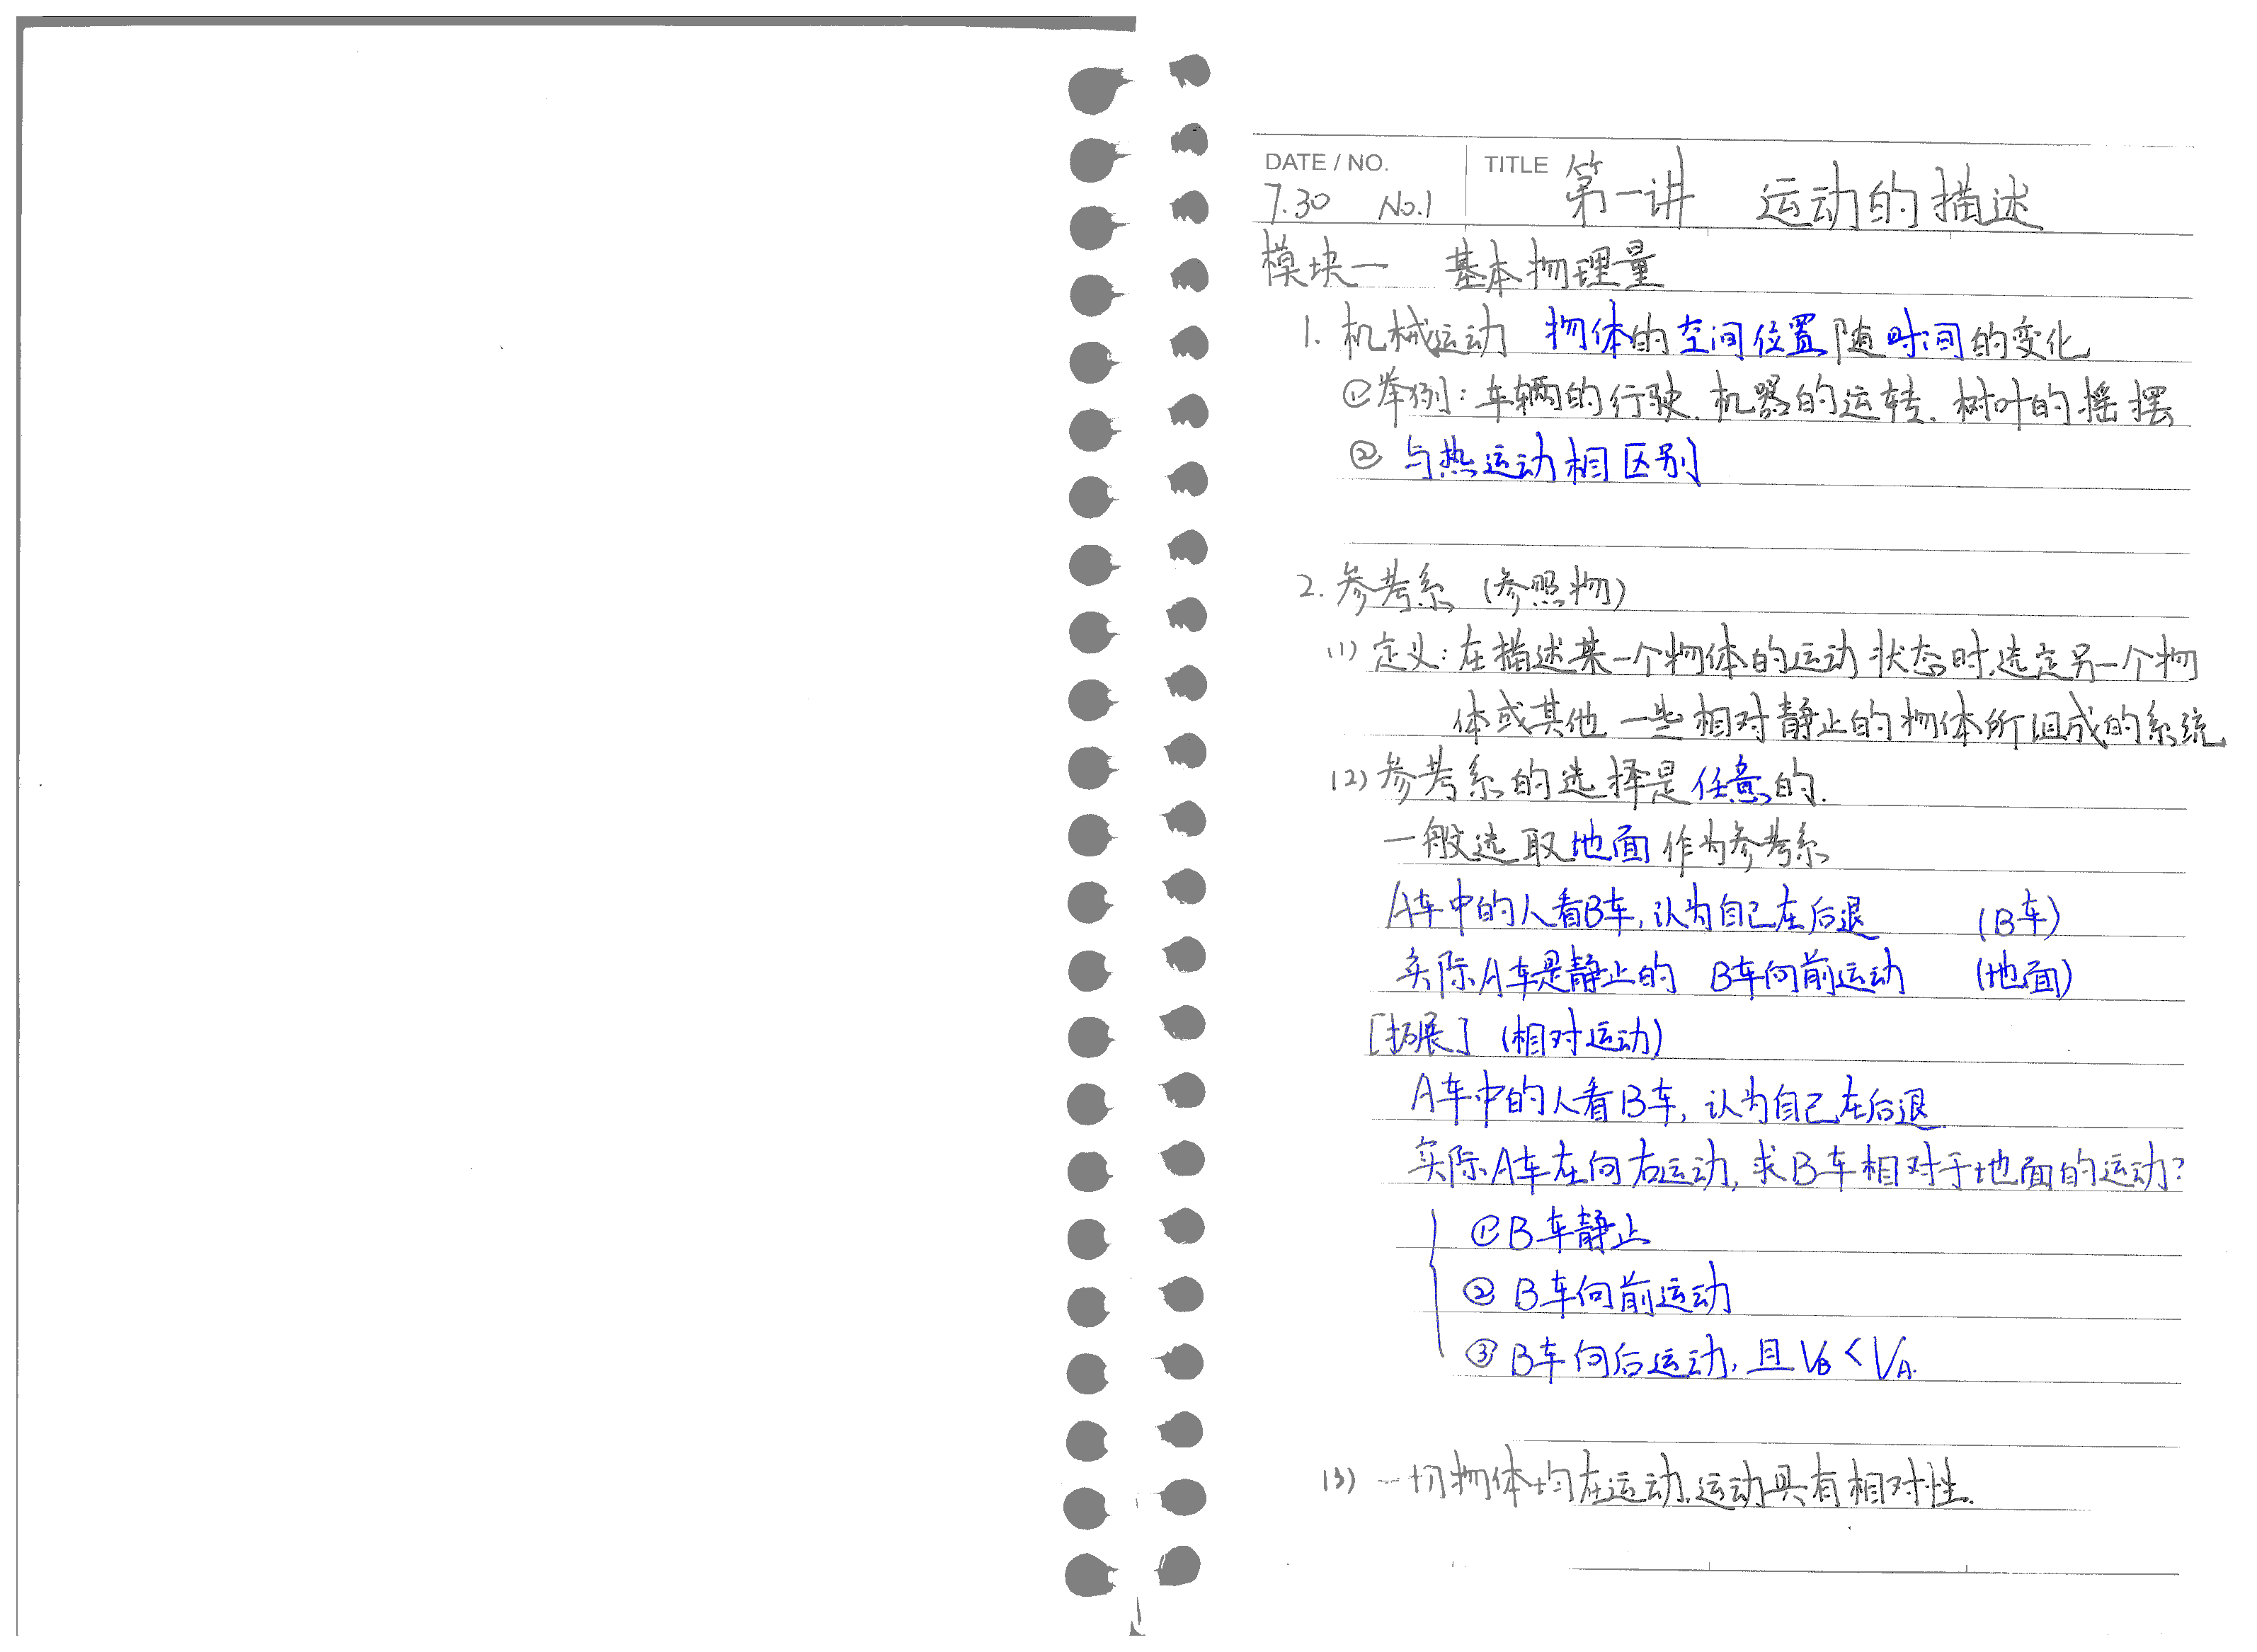 DATE / NO. TITLE 第一讲 运动的描述
7.30 No.1
模块一 基本物理量
1. 机械运动 物体的空间位置随时间的变化
①举例：车辆的行驶. 机器的运转. 树叶的摇摆
② 与热运动相区别
2. 参考系 (参照物)
(1) 定义：在描述某一个物体的运动状态时,选定另一个物
体或其他一些相对静止的物体所组成的系统
(2) 参考系的选择是任意的.
一般选取地面作为参考系
A车中的人看B车, 认为自己在后退 (B车)
实际A车是静止的 B车向前运动 (地面)
[拓展] (相对运动)
A车中的人看B车, 认为自己在后退
实际A车在向右运动, 求B车相对于地面的运动?
①B车静止
② B车向前运动
③ B车向后运动, 且 VB < VA.
(3) 一切物体均在运动,运动具有相对性.